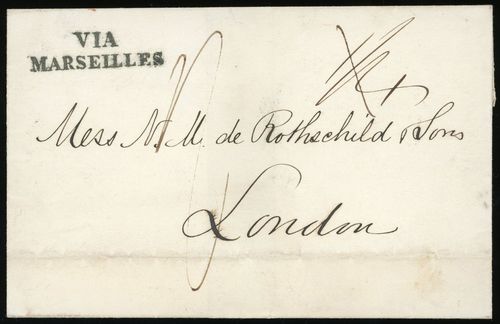 VIA
MARSEILLES
Mess N. M. de Rothschild & Sons
London